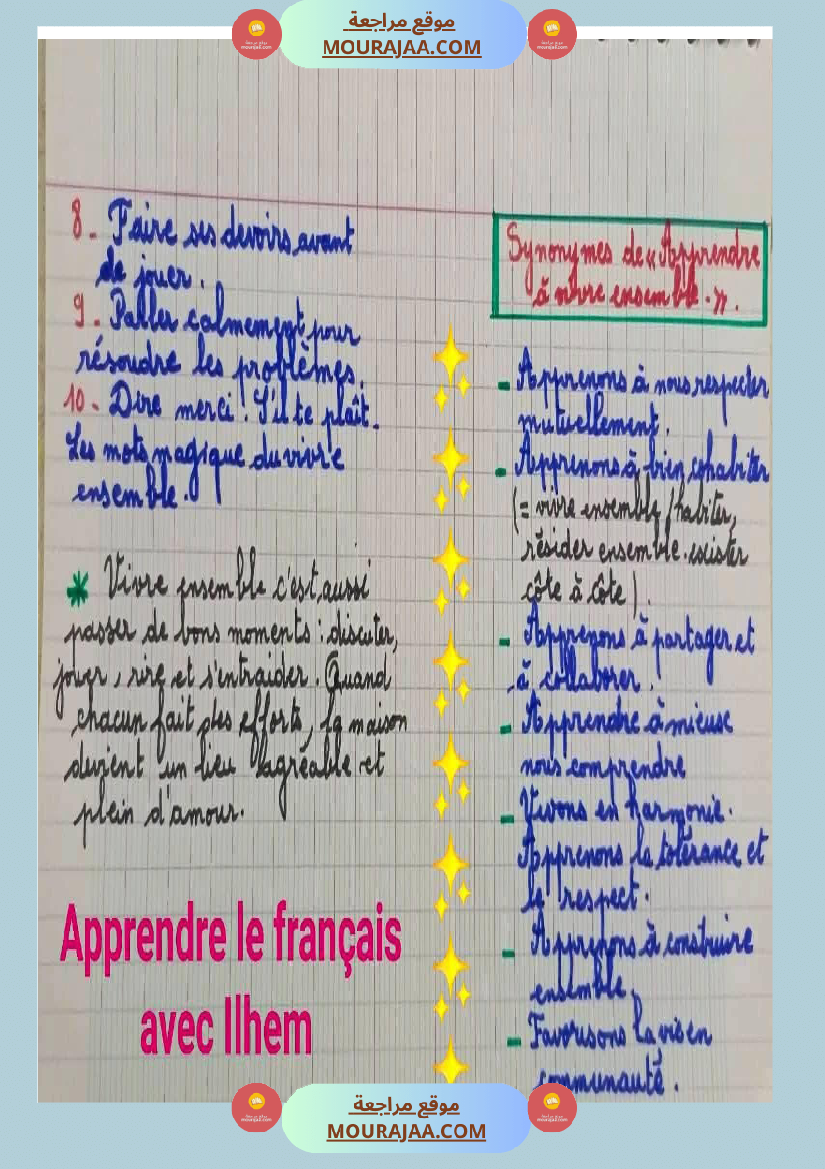 موقع مراجعة
MOURAJAA.COM
8. Faire ses devoirs avant
de jouer.
9. Parler calmement pour
résoudre les problèmes.
10. Dire merci! S'il te plaît.
Les mots magique du vivre
ensemble.
* Vivre ensemble c'est aussi
passer de bons moments : discuter,
jouer, rire et s'entraider. Quand
chacun fait des efforts, la maison
devient un lieu agréable et
plein d'amour.
Apprendre le français
avec Ilhem
Synonymes de « Apprendre
à vivre ensemble. ».
- Apprenons à nous respecter
mutuellement.
- Apprenons à bien cohabiter
(= vivre ensemble / habiter,
résider ensemble. exister
côte à côte).
- Apprenons à partager et
à collaborer.
- Apprendre à mieux
nous comprendre
- Vivons en harmonie.
Apprenons la tolérance et
le respect.
- Apprenons à construire
ensemble.
- Favorisons la vie en
communauté.
موقع مراجعة
MOURAJAA.COM